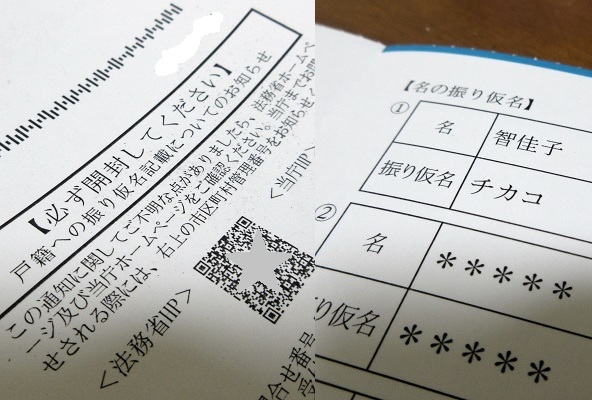 【必ず開封してください】
戸籍への振り仮名記載についてのお知らせ
この通知に関してご不明な点がありましたら、法務省ホームペ
ージ及び当庁ホームページをご確認ください。当庁までお問
せされる際には、右上の市区町村管理番号をお知らせ
＜法務省HP＞
＜当庁HP＞
合せ番号
【名の振り仮名】
①
名
智佳子
振り仮名
チカコ
②
名
＊＊＊＊＊
り仮名
＊＊＊＊＊